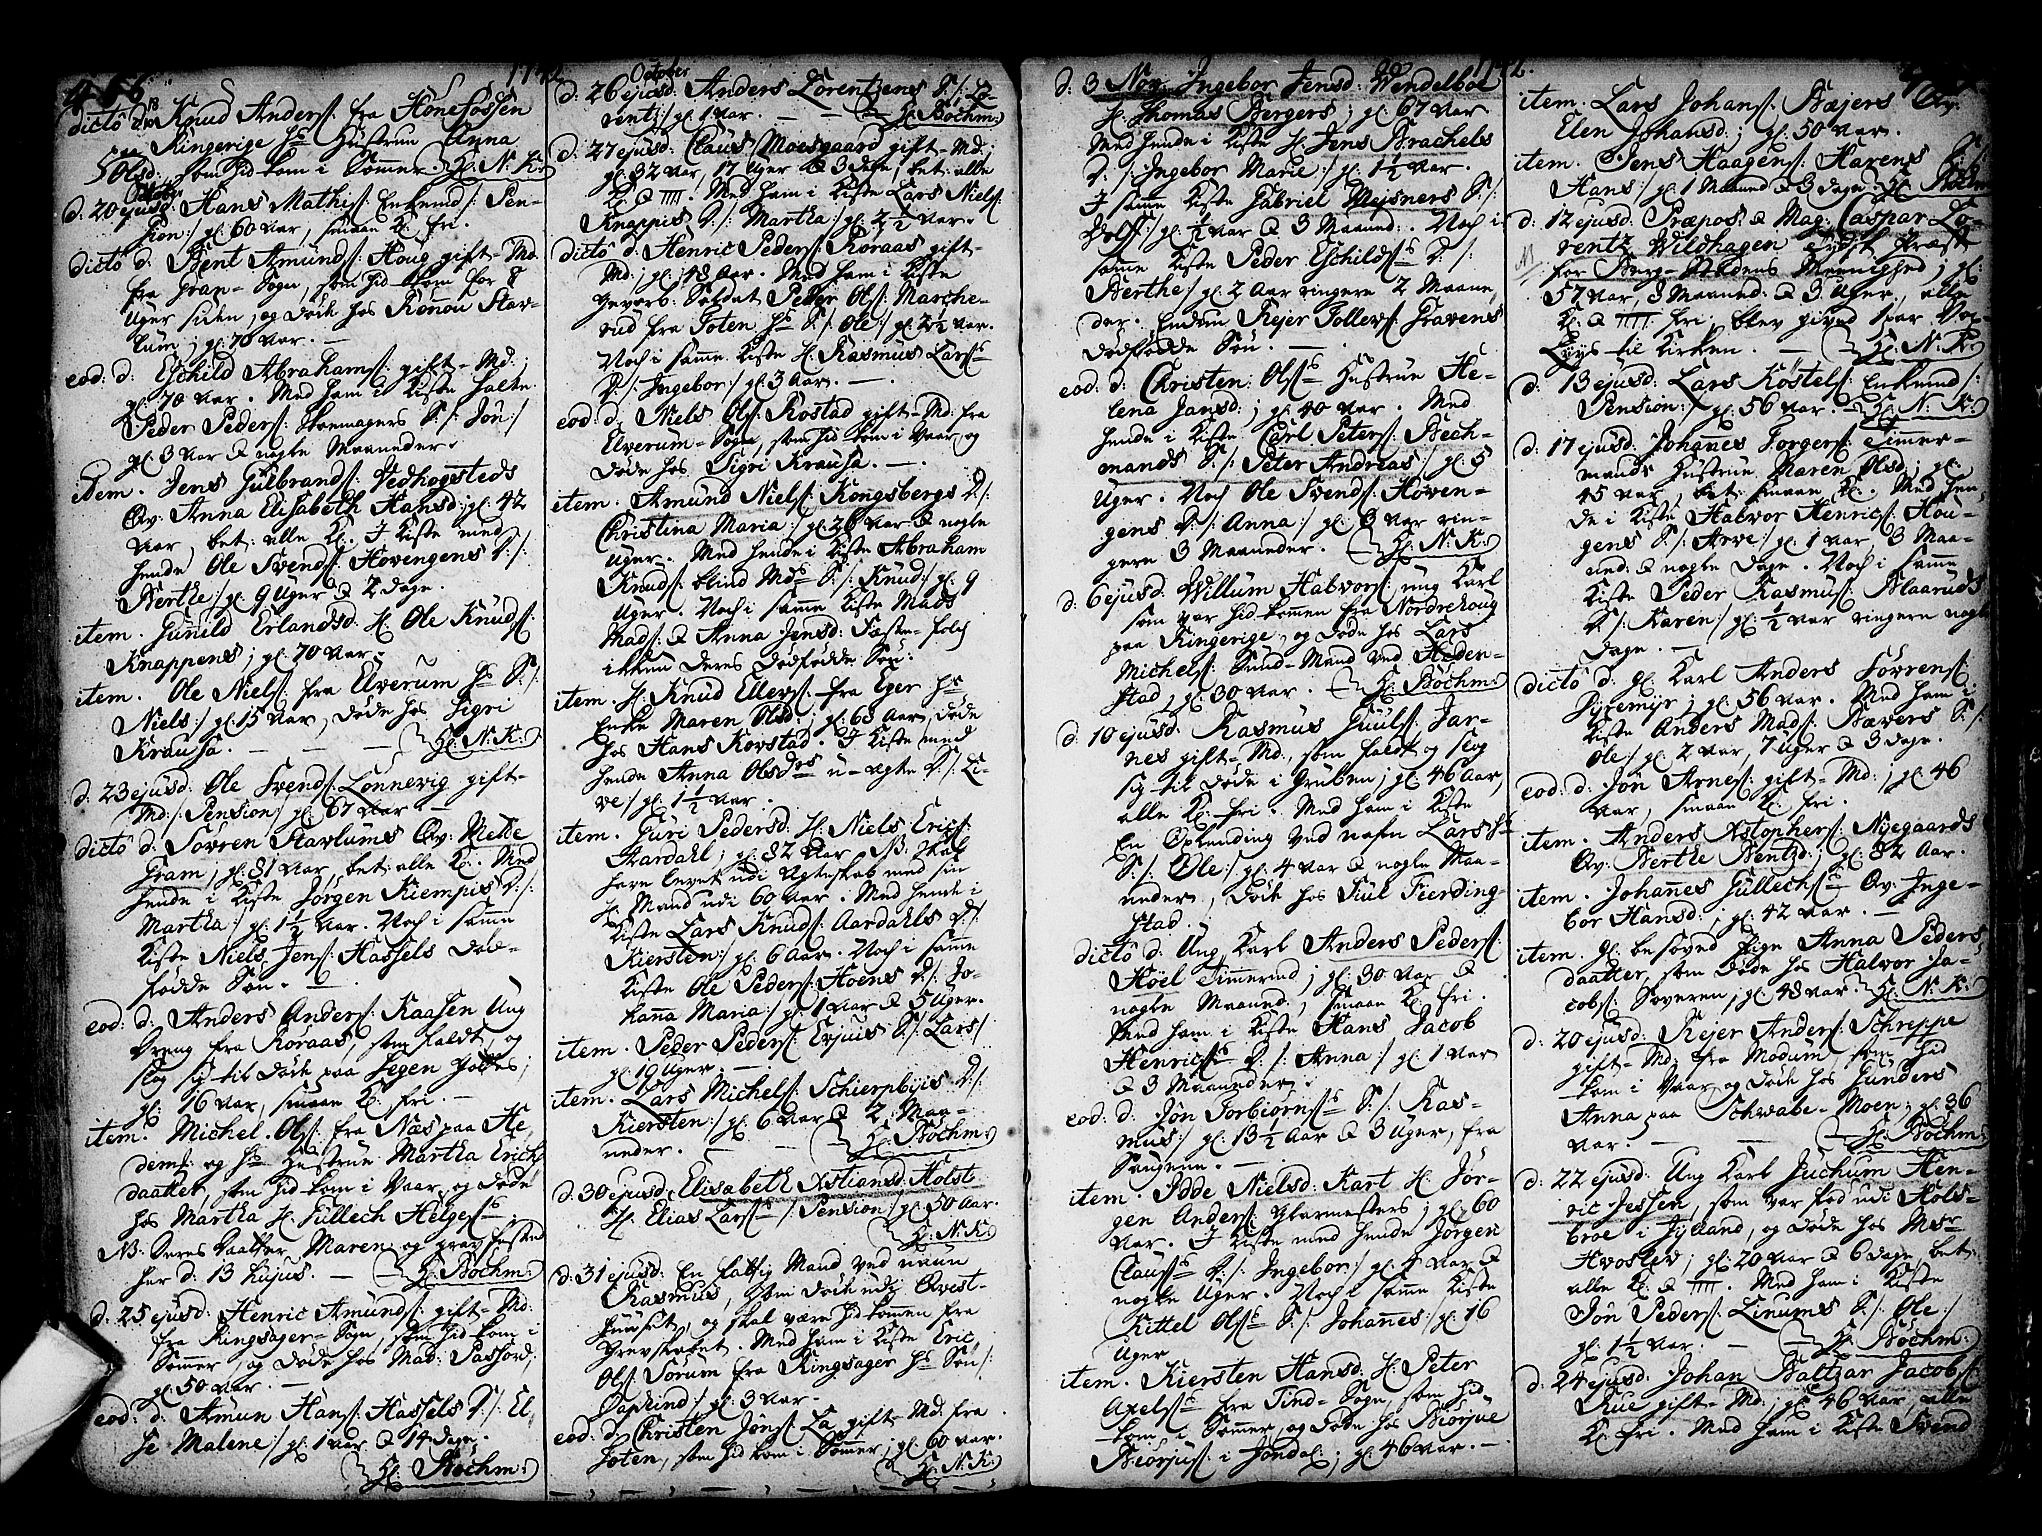 456
1742
dicto d. 18 Knud Anders: fra Hönefossen
paa Ringerige hs Hustrue Anna
Olsd: som hid kom i Sommer. H: N. K:
October
d. 20 ejusd: Hans Mathis: Enkemd /: Pen-
sion :/ gl: 60 Aar, smaae K: fri.
dicto d: Bent Amunds: Houg gift-Md:
fra Gran-Sogn, som hid kom for 8
Uger siden, og døde hos Rönnou Stav-
lum; gl: 70 Aar. —
eod: d: Eschild Abrahams: gift-Md:
gl: 70 Aar. Med ham i Kiste halte
Peder Peders: Skoemagers S: /: Jon :/
gl: 3 Aar & nogle Maaneder.
item. Jens Gulbrands: Vedhogsteds
Qv: Anna Elisabeth Hansd: gl: 42
Aar, bet: alle K:. I Kiste med
hende Ole Svends: Hovengens D: /:
Berthe :/ gl: 9 Uger & 2 Dage.
item. Gunild Erlandsd: H: Ole Knuds:
Knappens; gl: 70 Aar.
item. Ole Niels: fra Elverum hs S: /:
Niels :/ gl: 15 Aar, døde hos Sigri
Krausa. — — — H: N: K:
d: 23 ejusd: Ole Svends: Lönnevig gift-
Md: /: Pension :/ gl: 67 Aar —
dicto d: Sövren Stavlums Qv: Mette
Gram, gl: 81 Aar, bet: alle K:. Med
hende i Kiste Jörgen Kiempis D: /:
Martha :/ gl: 1½ Aar. Noch i samme
Kiste Niels Jens: Hassels død-
fødde Søn. —
eod: d: Anders Anders: Kaasen Ung
Dreng fra Roraas, som faldt, og
slog sig til Døde paa Segen Gottes;
gl: 16 Aar, smaae K: fri. —
item. Michel Ols: fra Næs paa He-
demk: og hs Hustrue Martha Erichs
daatter, som hid kom i Aar, og døde
hos Martha H: Gullech Helges:
NB: deres Daatter, Maren, og gravfæsted
her d: 13 hujus. — H: Böchm:
d: 25 ejusd: Henric Amunds: gift-Md:
fra Ringsager-Sogn, som hid kom i
Sommer, og døde hos Mad: Passord,
gl: 50 Aar. —
eod: d: Amun Hans: Hassels D: /: El-
se Malene :/ gl: 1 Aar & 14 Dage.
H: Böchm:
October
d: 26 ejusd: Anders Lorentzens S: /: Lo-
rentz :/ gl: 1 Aar. — — H: Böchm:
d: 27 ejusd: Claus Moesgaard gift-Md:
gl: 32 Aar, 17 Uger & 3 Dage, bet: alle
K: & ////. Med ham i Kiste Lars Niels:
Knappis D: /: Martha :/ gl: 2½ Aar.
dicto d: Henric Peders: Roraas gift-
Md: gl: 48 Aar. Med ham i Kiste
Gevorb: Soldat Peder Ols: Marche-
rud fra Toten hs S: /: Ole :/ gl: 2½ Aar.
Noch i samme Kiste H: Rasmus Larss
D: /: Ingebor :/ gl: 3 Aar. —
eod: d: Niels Ols: Rostad gift-Md: fra
Elverum-Sogn, som hid kom i Aar, og
døde hos Sigri Krausa. —
item. Amund Niels: Kongsbergs D: /:
Christina Maria :/ gl: 26 Aar & nogle
Uger. Med hende i Kiste Abraham
Knuds: blind Mds S: /: Knud :/ gl: 9
Uger. Noch i samme Kiste Mads
Mads: & Anna Jensd: Fæste-folch
ikkun deres dødfødde Søn:
item. H: Knud Ellevs: fra Eger hs
Enke Maren Olsd:; gl: 63 Aar, døde
hos Hans Kovstad. I Kiste med
hende Anna Olsdrs u-ægte D: /: Li-
ve :/ gl: 1½ Aar.
item. Guri Pedersd: H: Niels Erics:
Aardahl; gl: 82 Aar NB: skal
have levet udi Ægteskab med sin
H: Mand udi 60 Aar. Med hende i
Kiste Lars Knuds: Aardahls D: /:
Kiersten :/ gl: 6 Aar. Noch i samme
Kiste Ole Peders: Hoens D: /: Jo-
hanna Maria :/ gl: 1 Aar & 5 Uger.
item. Peder Peders: Evjuis S: /: Lars :/
gl: 19 Uger. —
item. Lars Michels: Schierpbiis D: /:
Kiersten :/ gl: 6 Aar & 2 Maa-
neder. — — H: Böchm:
d: 30 ejusd: Elisabeth Xstiansd: Holst
H: Elias Larss: /: Pension :/ gl: 50 Aar.
H: N: K:
d: 31 ejusd: En fattig Mand ved navn
Rasmus, som døde udi Qvest-
huuset, og skal være hid kommen fra
Grevskabet. Med ham i Kiste Eric
Ols: Sorum fra Ringsager hs Søn /:
Paafvind :/ gl: 3 Aar. —
eod: d: Christen Jöns: Lia gift-Md: fra
Toten, som hid kom i Sommer; gl: 60 Aar.
H: N: K:
1742.
d: 3 Nov. Ingebor Jensd: Wendelboe
H: Thomas Bergers; gl: 67 Aar
Med hende i Kiste H: Jens Brachels
D: /: Ingebor Marie :/ gl: 1½ Aar.
I samme Kiste Gabriel Mejsners S: /:
Wolff :/ gl: ½ Aar & 3 Maaned. Noch i
samme Kiste Peder Eschildss D: /:
Berthe :/ gl: 2 Aar ringere 2 Maane-
der. Endnu Rejer Tollevs: Gravens
dødfødde Søn. —
eod: d: Christen Olss Hustrue He-
lena Jansd:; gl: 40 Aar. Med
hende i Kiste Carl Peters: Bech-
mands S: /: Peter Andreas :/ gl: 5
Uger. Noch Ole Svends: Hoven-
gens D: /: Anna :/ gl: 3 Aar rin-
gere 3 Maaneder. — H: N: K:
d: 6 ejusd: Willum Halvors: ung Karl
som var hid kommen fra Nordrehoug
paa Ringerige, og døde hos Lars
Michels: Sund-Mand ved Heden-
stad, gl: 30 Aar. — H: Böchm:
d: 10 ejusd: Rasmus Juuls: Jar-
nes gift-Md:, som faldt og slog
sig til døde i Gruben; gl: 46 Aar,
alle K: fri. Med ham i Kiste
En Oplending ved nafn Lars hs
S: /: Ole :/ gl: 4 Aar & nogle Maa-
neder, døde hos Juul Fierding-
stad. —
dicto d: Ung Karl Anders Peders:
Höel Timmermd; gl: 30 Aar &
nogle Maaned:, smaae K: fri.
Med ham i Kiste Hans Jacob
Henricss D: /: Anna :/ gl: 1 Aar
& 3 Maaneder.
eod: d: Jon Torbiörns: S: /: Ras-
mus :/ gl: 13½ Aar & 3 Uger, fra
Saugene. —
item. Idde Nielsd: Kart H: Jör-
gen Anders: Glarmesters; gl: 60
Aar. I Kiste med hende Jörgen
Clauss D: /: Ingebor :/ gl: 4 Aar &
nogle Uger. Noch i samme Kiste
Kittel Olss S: /: Johannes :/ gl: 16
Uger
item. Kiersten Hansd: H: Peter
Axelss fra Tind-Sogn, som hid-
kom i Sommer, og døde hos Biörjue
Biörjus: i Jondal; gl: 46 Aar. —
item. Lars Johans: Bæjers Qv:
Elen Johansd:; gl: 50 Aar.
item. Jens Haagens: Harens S: /:
Hans :/ gl: 1 Maaned & 3 Dage. H: Böchm
d: 12 ejusd: Præpos: & Mag: Caspar Lo-
rentz Wildhagen sidst Præst
for Berg-Stadens Meenighed; gl:
57 Aar, 3 Maaned: & 3 Uger, alle
K: & ///// fri: blev gived par Vox-
Liys til Kirken. — H: N: K:
d: 13 ejusd: Lars Kostels: Enkemd /:
Pension :/ gl: 56 Aar. — H: N: K:
d: 17 ejusd: Johanes Torgers: Timer-
mands Hustrue Maren Olsd:; gl:
45 Aar, bet: smaae K:. Med hen-
de i Kiste Halvor Henrics: Hou-
gens S: /: Arve :/ gl: 1 Aar 3 Maa-
ned: & nogle Dage. Noch i samme
Kiste Peder Rasmus: Blaaruds
D: /: Karen :/ gl: ½ Aar ringere nogle
Dage. —
dicto d: gl: Karl Anders Sövrens:
Dyfemyr; gl: 56 Aar. Med ham i
Kiste Anders Mads: Bævers S: /:
Ole :/ gl: 2 Aar, 7 Uger & 3 Dage.
eod: d: Jön Arnes: gift-Md:, gl: 46
Aar, smaae K: fri.
item. Anders Xstophers: Nyegaards
Qv: Berthe Bentzd:, gl: 32 Aar.
item. Johannes Gullechs: Qv: Inge-
bor Hansd:, gl: 42 Aar. —
item. gl: besoved Pige Anna Peders
daatter, som døde hos Halvor Ja-
cobs: Soveren, gl: 48 Aar. H: N: K:
d: 20 ejusd: Rejer Anders: Schreppe
gift-Md: fra Modum som hid
kom i Aar og døde hos Gunders
Anna paa Schwabe-Moen; gl: 36
Aar. — — H: Böchm:
d: 22 ejusd: Ung Karl Juchum Hen-
ric Jessen, som var fød udi Hols-
broe i Jylland, og døde hos Msr
Hvoslev; gl: 20 Aar & 6 Dage, bet:
alle K: & ////. Med ham i Kiste
Jon Peders: Linums S: /: Ole :/
gl: 1½ Aar. — H: Böchm:
d: 24 ejusd: Johan Baltzar Jacobs:
Rue gift-Md:, gl: 46 Aar, alle
K: fri. Med ham i Kiste Svend